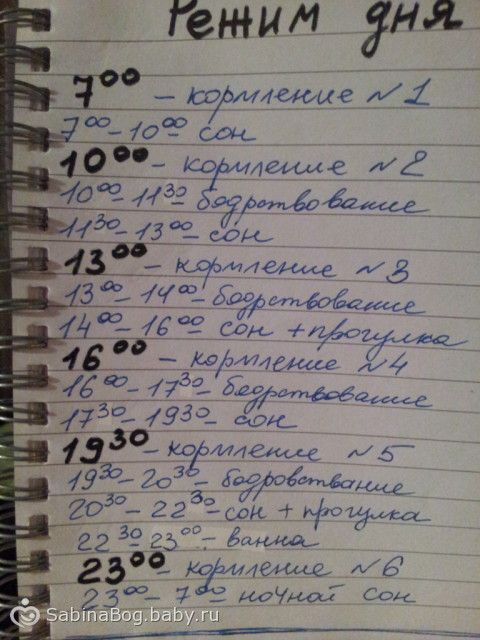 Режим дня
7⁰⁰ – кормление №1
7⁰⁰–10⁰⁰ сон
10⁰⁰ – кормление №2
10⁰⁰–11³⁰ – бодрствование
11³⁰–13⁰⁰ – сон
13⁰⁰ – кормление №3
13⁰⁰–14⁰⁰ – бодрствование
14⁰⁰–16⁰⁰ – сон + прогулка
16⁰⁰ – кормление №4
16⁰⁰–17³⁰ – бодрствование
17³⁰–19³⁰ – сон
19³⁰ – кормление №5
19³⁰–20³⁰ – бодровствание
20³⁰–22³⁰ – сон + прогулка
22³⁰–23⁰⁰ – ванна
23⁰⁰ – кормление №6
23⁰⁰–7⁰⁰ ночной сон
SabinaBog.baby.ru